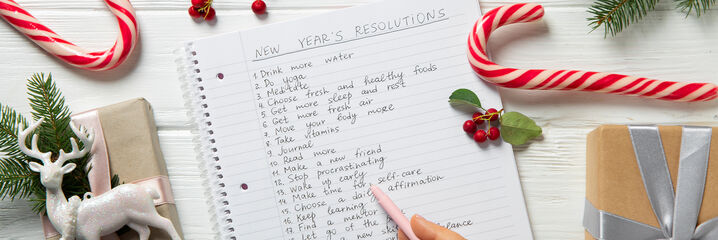 NEW YEAR'S RESOLUTIONS
1. Drink more water
2. Do yoga
3. Meditate
4. Choose fresh and healthy foods
5. Get more sleep and rest
6. Get more fresh air
7. Move your body more
8. Take vitamins
9. Journal
10. Read more
11. Make a new friend
12. Stop procrastinating
13. Wake up early
14. Make time for self-care
15. Choose a daily affirmation
16. Keep learning
17. Find a mentor
18. Let go of the balance
a new